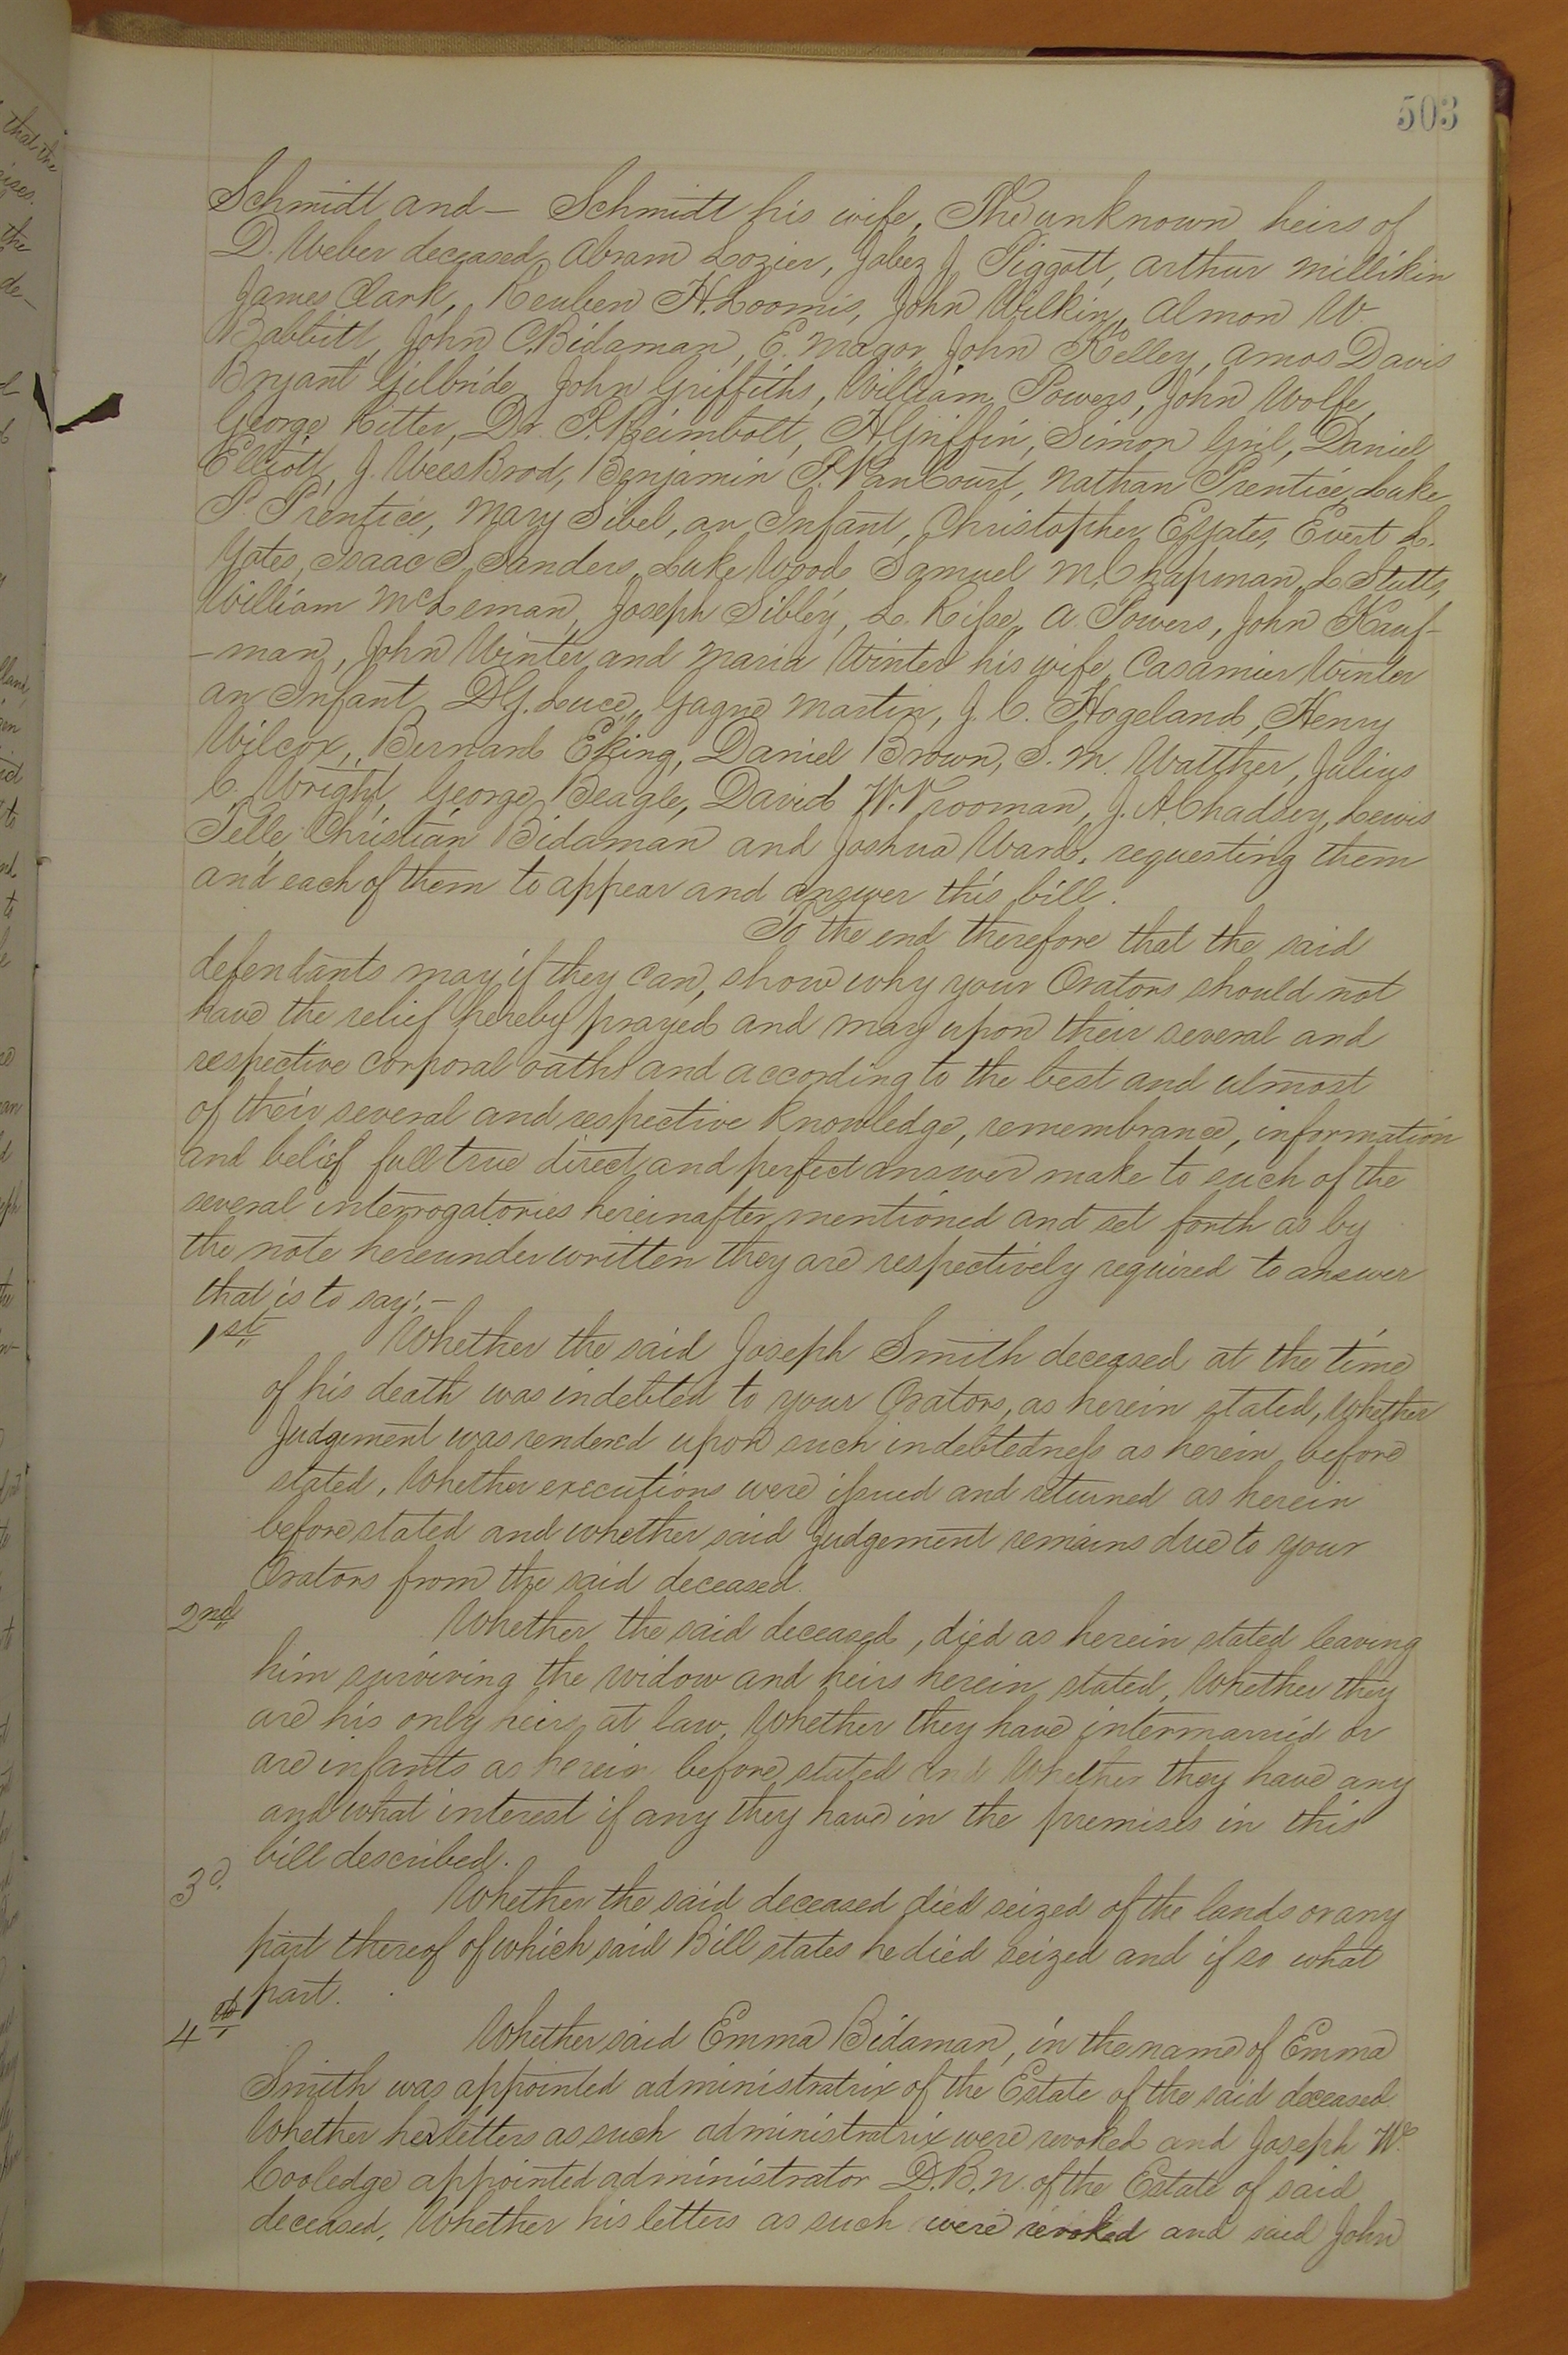 503
Schmidt and — Schmidt his wife, The unknown heirs of
D. Weber deceased, Abram Lozier, Jabez J Piggott, Arthur Millikin
James Clark, Reuben H. Loomis, John Wilkin, Almon W.
Babbitt, John C. Bidaman, E. Magor, John Kelley, Amos Davis
Bryant Gilbride, John Griffiths, William Powers, John Wolfe,
George Ritter, Dr. P. Reimbolt, H. Griffin, Simon Gril, Daniel
Elliott, J. Weesbrod, Benjamin P. VanCourt, Nathan Prentice, Luke
P. Prentice, Mary Sibel, an Infant, Christopher E Yates, Evert L.
Yates, Isaac S. Sanders, Luke Wood, Samuel M. Chapman, L. Stutts,
William McLeman, Joseph Sibley, L. Risse, A. Powers, John Kauf-
-man, John Winter and Maria Winter his wife, Casamier Winter
an Infant, D.G. Luce, Gagne Martin, J. C. Hogeland, Henry
Wilcox, Bernard Eking, Daniel Brown, S. M. Walther, Julius
C. Wright, George Beagle, David W. Vrooman, J. A. Chadsey, Lewis
Telle Christian Bidaman and Joshua Ward, requesting them
and each of them to appear and answer this bill.
To the end therefore that the said
defendants may if they can, show why your Orators should not
have the relief hereby prayed and may upon their several and
respective corporal oaths and according to the best and utmost
of their several and respective knowledge, remembrance, information
and belief full true direct and perfect answer make to such of the
several interrogatories hereinafter mentioned and set forth as by
the note hereunder written they are respectively required to answer
that is to say; —
1st Whether the said Joseph Smith deceased at the time
of his death was indebted to your Orators, as herein stated, Whether
Judgement was rendered upon such indebtedness as herein before
stated, Whether executions were issued and returned as herein
before stated and whether said Judgement remains due to your
Orators from the said deceased.
2nd Whether the said deceased, died as herein stated leaving
him surviving the widow and heirs herein stated, Whether they
are his only heirs at law, Whether they have intermarried or
are infants as herein before stated and Whether they have any
and what interest if any they have in the premises in this
bill described.
3d. Whether the said deceased died seized of the lands or any
part thereof of which said Bill states he died seized and if so what
part.
4th Whether said Emma Bidaman, in the name of Emma
Smith was appointed administratrix of the Estate of the said deceased.
Whether her letters as such administratrix were revoked and Joseph W.
Cooledge appointed administrator D.B.N. of the Estate of said
deceased, Whether his letters as such were revoked and said John